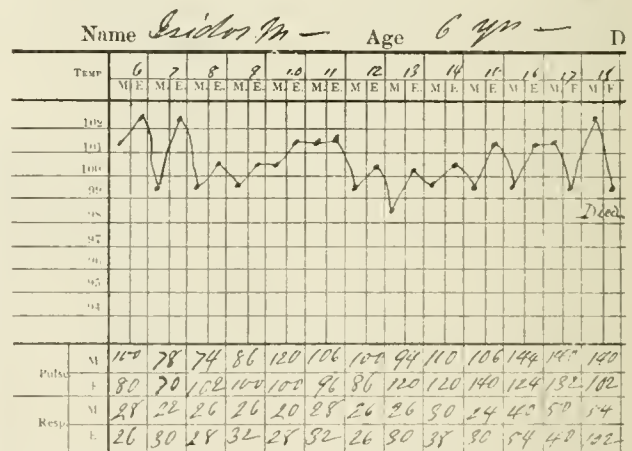 Name Isidor M — Age 6 yrs — D
TEMP 6 7 8 9 10 11 12 13 14 15 16 17 18
M E. M. E. M. E. M. E. M. E. M. E. M E M E M E M E M E M E M E
102
101
100
99
98 Died
97
96
95
94
Pulse M 100 78 74 86 120 106 100 94 110 106 144 140
E 80 70 102 100 100 96 86 120 120 140 124 132 102
Resp. M 28 22 26 26 20 28 26 26 30 24 40 50 54
E 26 30 28 32 28 32 26 30 38 30 54 40